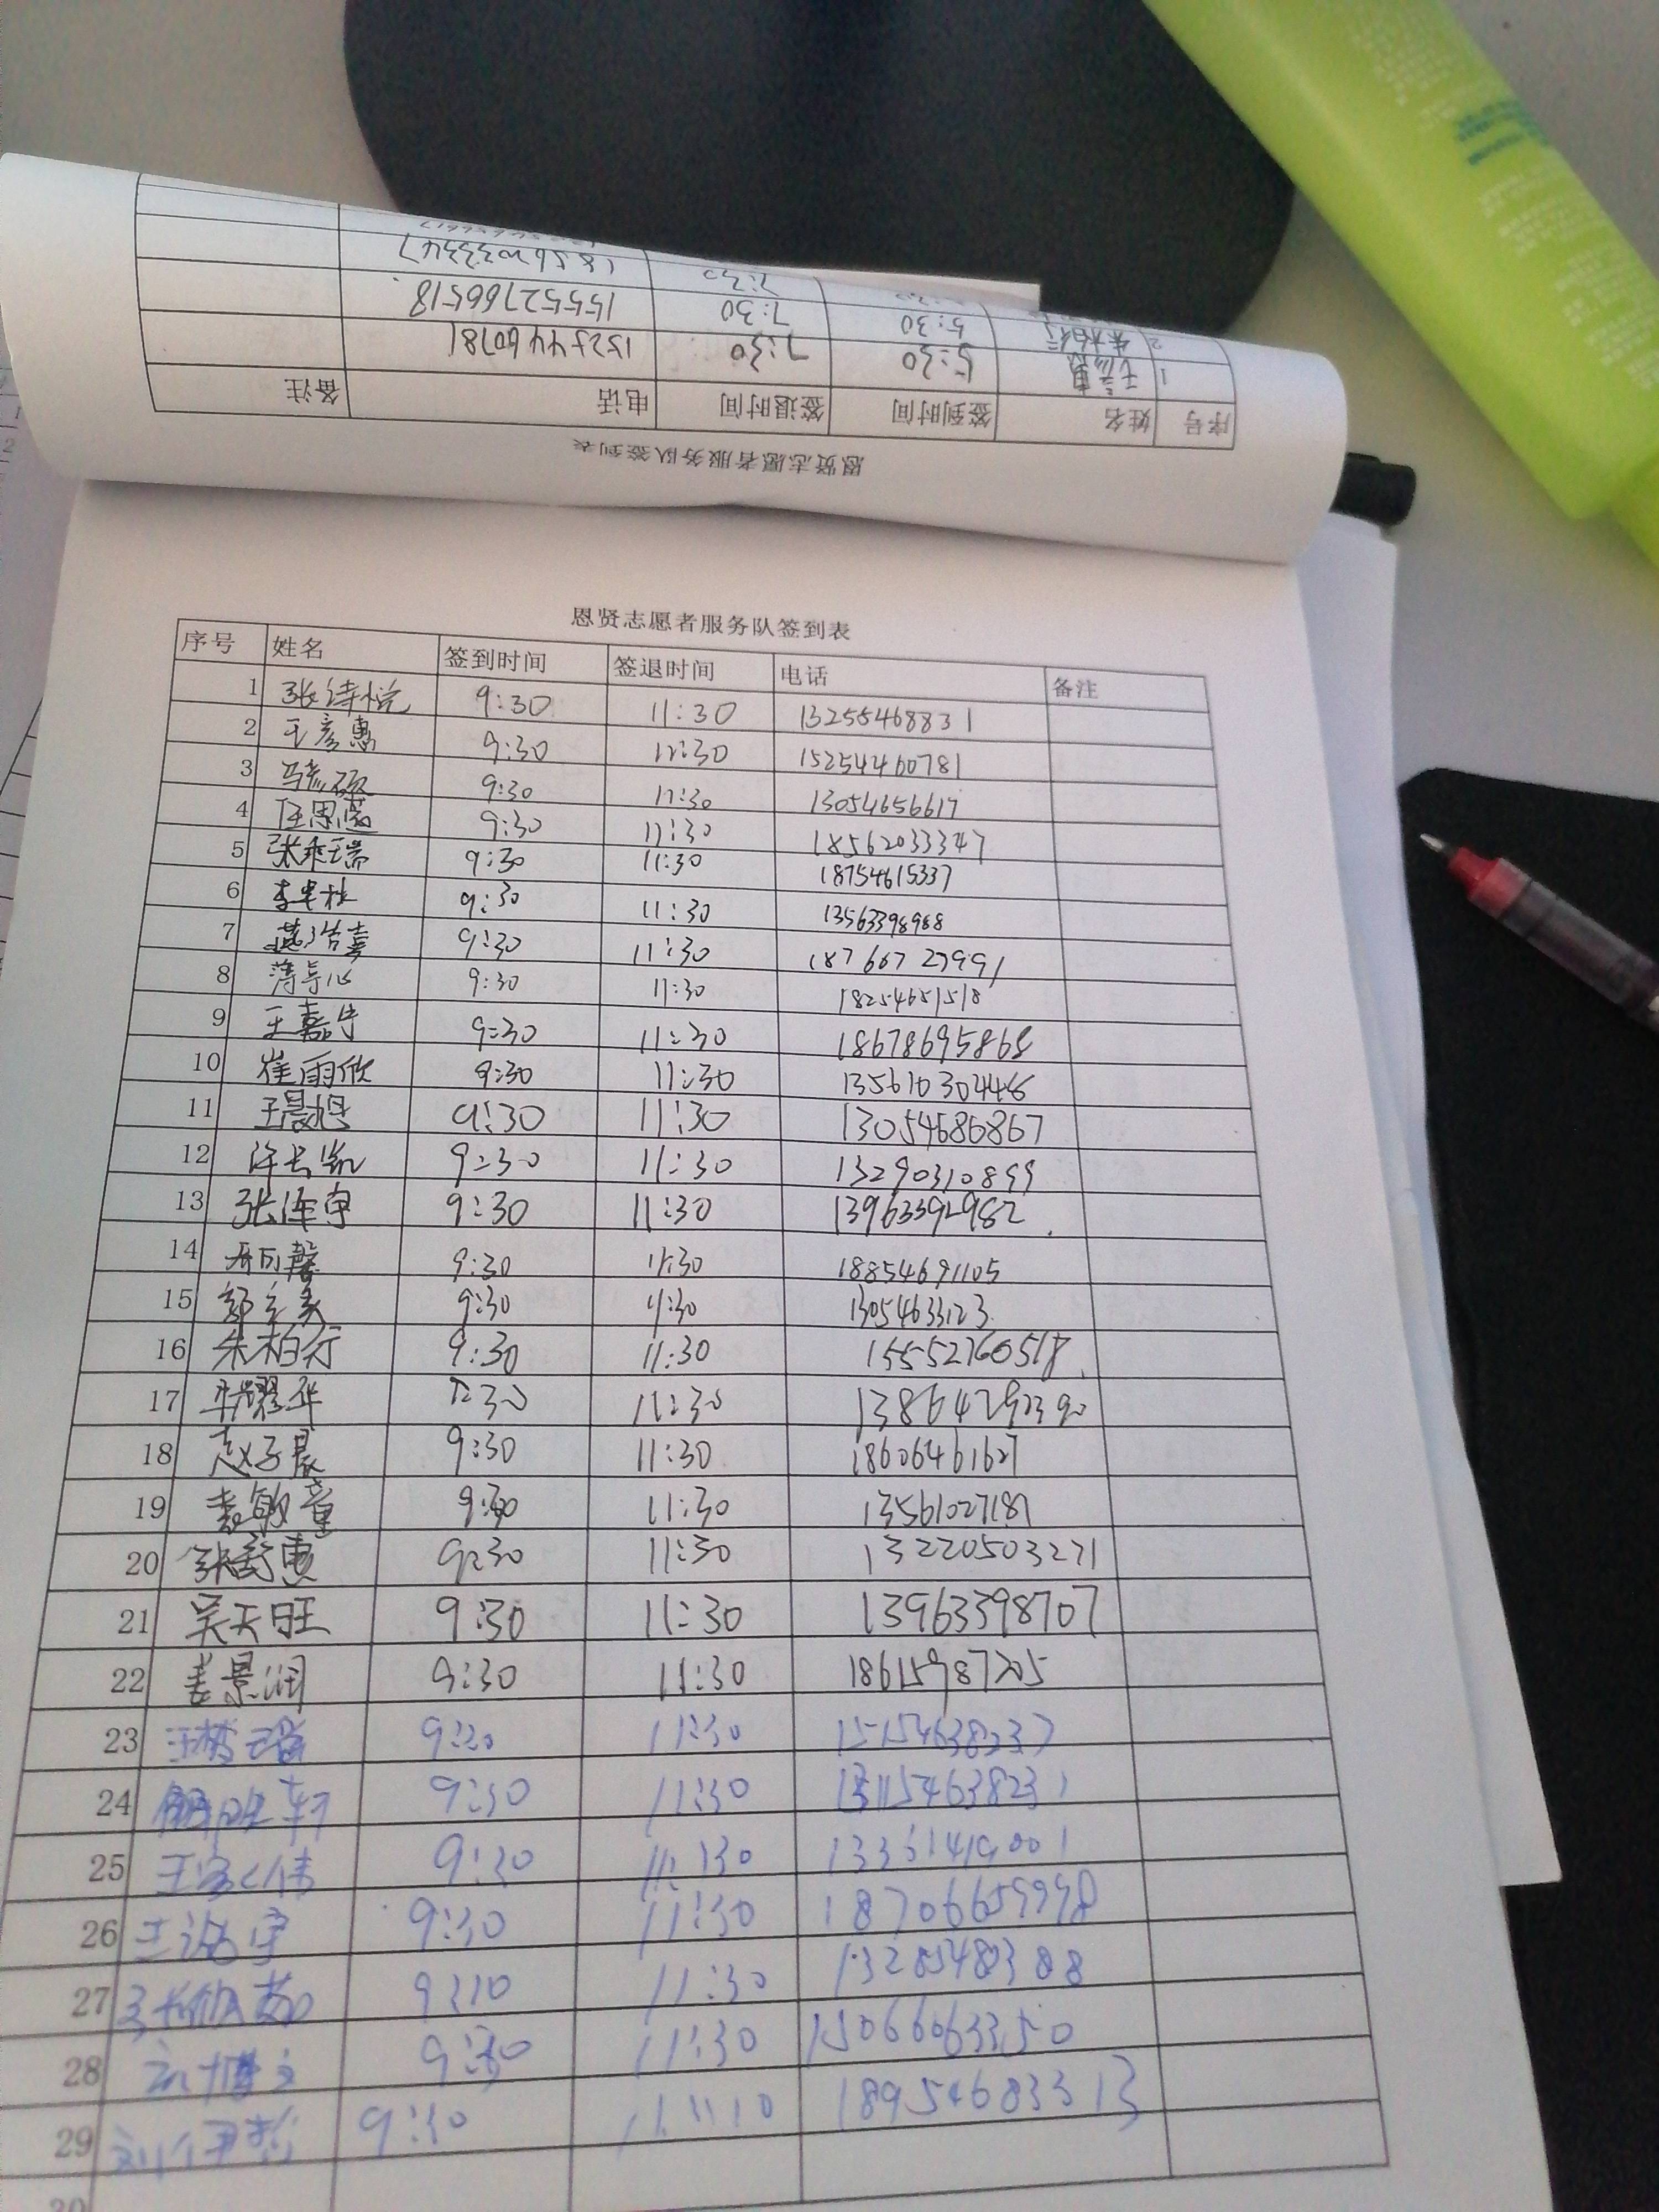 恩贤志愿者服务队签到表
序号 姓名 签到时间 签退时间 电话 备注
1 5:30 7:30 15254460781
2 朱柏行 5:30 7:30 15552766518
7:30 18562033347
恩贤志愿者服务队签到表
序号 姓名 签到时间 签退时间 电话 备注
1 张诗悦 9:30 11:30 13255468831
2 王彦惠 9:30 11:30 15254460781
3 9:30 11:30 13054656617
4 任思蕊 9:30 11:30 18562033347
5 张乘瑞 9:30 11:30 18754615337
6 9:30 11:30 13563398988
7 9:30 11:30 18766727991
8 9:30 11:30 18254651518
9 王嘉宁 9:30 11:30 18678695868
10 崔雨欣 9:30 11:30
11 王晨旭 9:30 11:30 13054686867
12 许长凯 9:30 11:30 13290310899
13 9:30 11:30 13963392982
14 9:30 11:30 18854691105
15 9:30 11:30 13054633123
16 朱柏行 9:30 11:30 15552760518
17 11:30 13864292390
18 赵子晨 9:30 11:30 18606461627
19 袁敏童 9:30 11:30 13561027187
20 张舒惠 9:30 11:30 13220503271
21 吴天旺 9:30 11:30 13963398707
22 姜景润 9:30 11:30 18615987205
23 9:30 11:30
24 9:30 11:30
25 9:30 11:30
26 9:30 11:30 18706659998
27 11:30
28 9:30 11:30 15066063350
29 18954683313
30